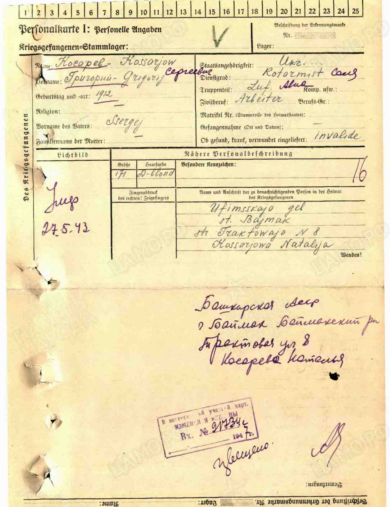 1 2 3 4 5 6 7 8 9 10 11 12 13 14 15 16 17 18 19 20 21 22 23 24 25
Personalkarte I: Personelle Angaben
Beschriftung der Erkennungsmarke
Nr.
Kriegsgefangenen-Stammlager:
Lager:
Des Kriegsgefangenen
Name: Косарев Kossarjow
Staatsangehörigkeit: Ukr.
Vorname: Григорий - Grigorij Сергеевич
Dienstgrad: Rotarmist
Geburtstag und -ort: 1912
Truppenteil: Inf.
Religion:
Zivilberuf: Arbeiter Berufs-Gr.:
Vorname des Vaters: Ssergej
Matrikel Nr. (Stammrolle des Heimatstaates):
Gefangennahme (Ort und Datum):
Familienname der Mutter:
Ob gesund, krank, verwundet eingeliefert: invalide
Lichtbild
Nähere Personalbeschreibung
Größe Haarfarbe Besondere Kennzeichen:
171 D-blond
16
Fingerabdruck des rechten Zeigefingers
Name und Anschrift der zu benachrichtigenden Person in der Heimat des Kriegsgefangenen
Ufimsskaja gebl
st. Bajmak
str Traktowaja N 8
Kossarjowa Natalija
Wenden!
27.5.42
Башкирская Асср
г Баймак Баймакский рн
Трактовая ул 8
Косарева Наталья
Вх. № 31734с
194 г.
Bemerkungen:
Beschriftung der Erkennungsmarke Nr.
Lager:
Name: